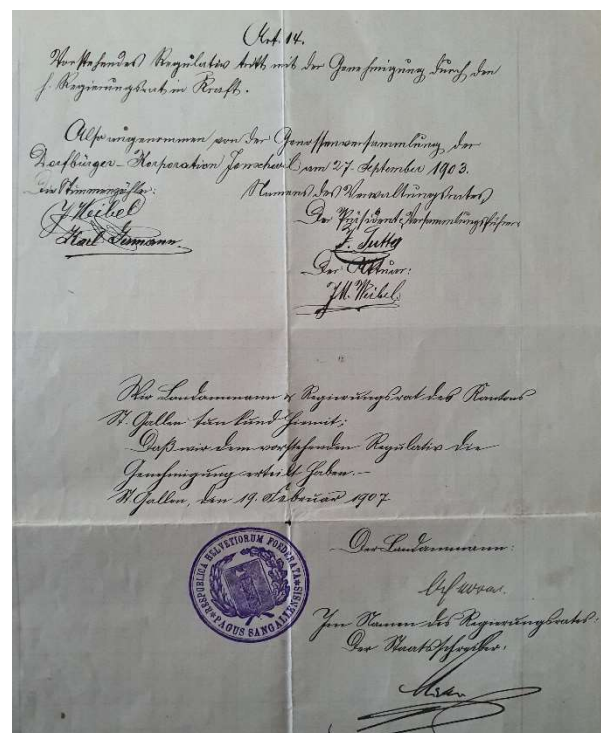 Art. 14.
Vorstehendes Regulativ tritt mit der Genehmigung durch den
h. Regierungsrat in Kraft.
Also angenommen von der Genossenversammlung der
Dorfbürger-Korporation Jonschwil am 27. September 1903.
Die Stimmenzähler:
J. Weibel
Karl Germann
Namens des Verwaltungsrates
Der Präsident & Versammlungsführer
J. Sutter
Der Aktuar:
J. M. Weibel
Wir Landammann & Regierungsrat des Kantons
St. Gallen tun kund hiemit;
Daß wir dem vorstehenden Regulativ die
Genehmigung erteilt haben. –
St. Gallen, den 19. Februar 1907
RESPUBLICA HELVETIORUM FOEDERATA
PAGUS SANGALLENSIS
Der Landammann:
Im Namen des Regierungsrates:
Der Staatsschreiber: